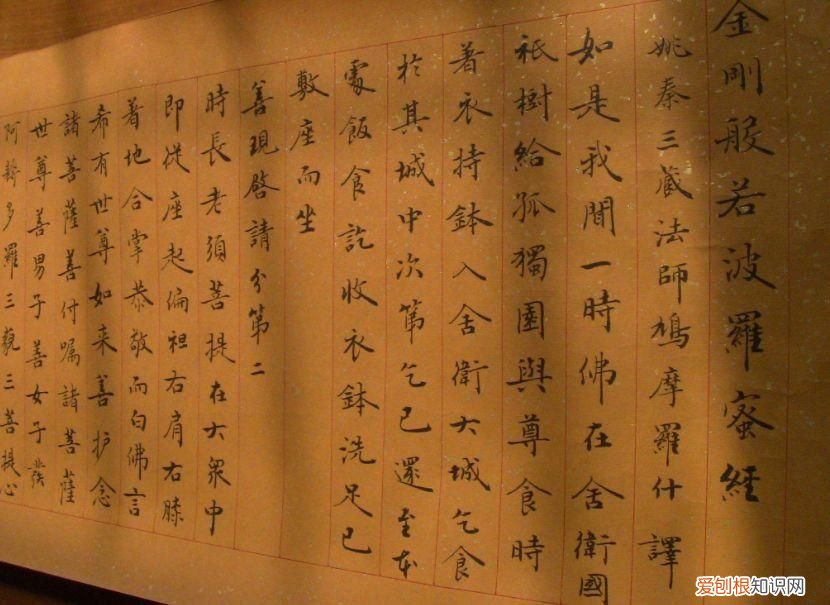 金剛般若波羅蜜經
姚秦三藏法師鳩摩羅什譯
如是我聞一時佛在舍衛國
祇樹給孤獨園與尊食時
著衣持鉢入舍衛大城乞食
於其城中次第乞已還至本
處飯食訖收衣鉢洗足已
敷座而坐
善現啓請分第二
時長老須菩提在大衆中
即從座起偏袒右肩右膝
着地合掌恭敬而白佛言
希有世尊如来善护念
諸菩薩善付嘱諸菩薩
世尊善男子善女子發
阿耨多羅三藐三菩提心
爱刨根知识网